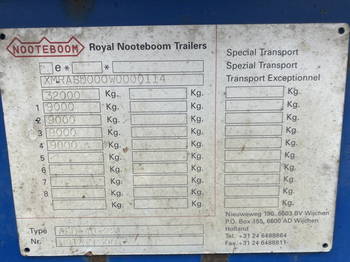 NOOTEBOOM Royal Nooteboom Trailers
Special Transport
Spezial Transport
Transport Exceptionnel
e * *
32000 Kg. Kg. Kg.
1 9000 Kg. Kg. Kg.
2 9000 Kg. Kg. Kg.
3 9000 Kg. Kg. Kg.
4 9000 Kg. Kg. Kg.
5 Kg. Kg. Kg.
6 Kg. Kg. Kg.
7 Kg. Kg. Kg.
8 Kg. Kg. Kg.
Kg.
Type
Nr.
Nieuweweg 190, 6603 BV Wijchen
P.O. Box 155, 6600 AD Wijchen
Holland
Tel. +31 24 6488864
Fax +31 24 6488811